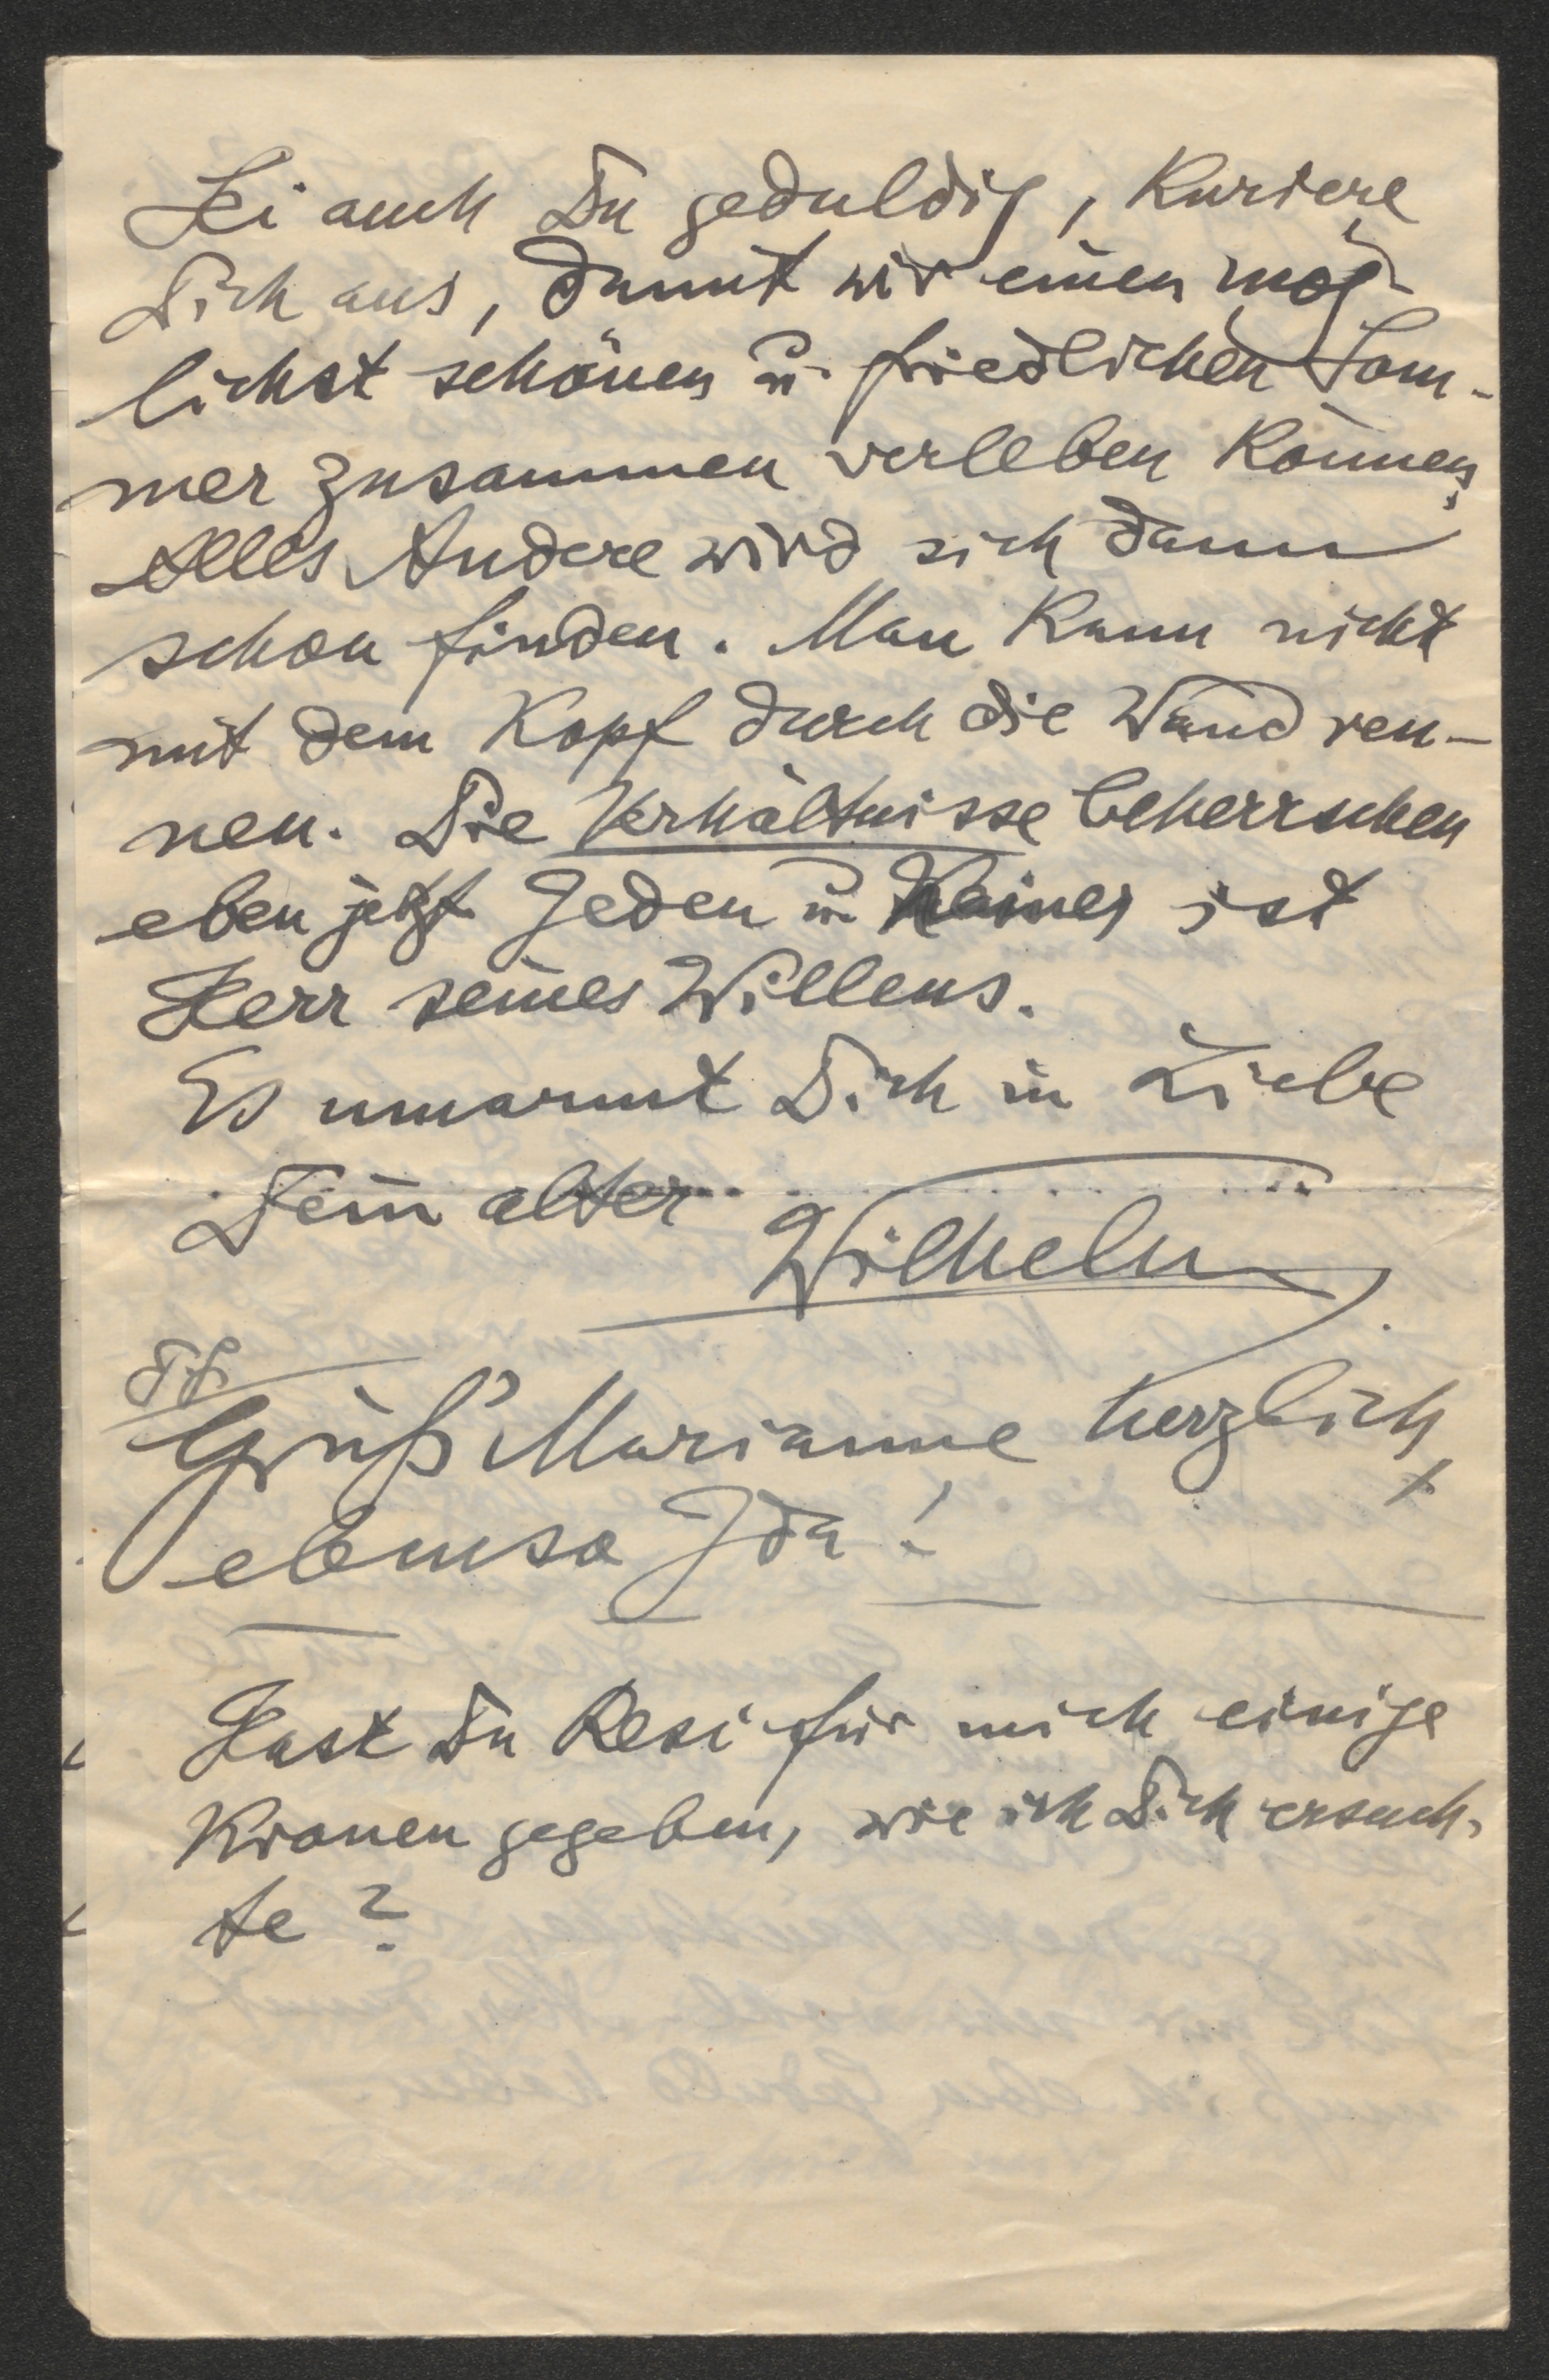 Sei auch Du geduldig, kuriere
Dich aus, damit wir einen mög-
lichst schönen u. friedlichen Som-
mer zusammen verleben können,
Alles Andere wird sich dann
schon finden. Man kann nicht
mit dem Kopf durch die Wand ren-
nen. Die Verhältnisse beherrschen
eben jetzt Jeden u. Keiner ist
Herr seines Willens.
Es umarmt Dich in Liebe
Dein alter
Wilhelm
Grüß' Marianne herzlich,
ebenso Ida!
Hast Du Resi für mich einige
Kronen gegeben, wie ich Dich ersuch-
te?